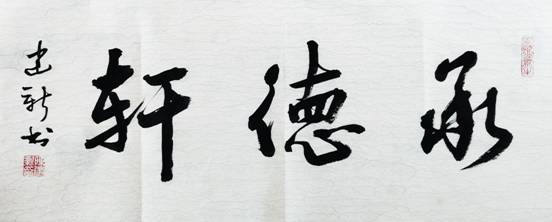 承德轩
建新书